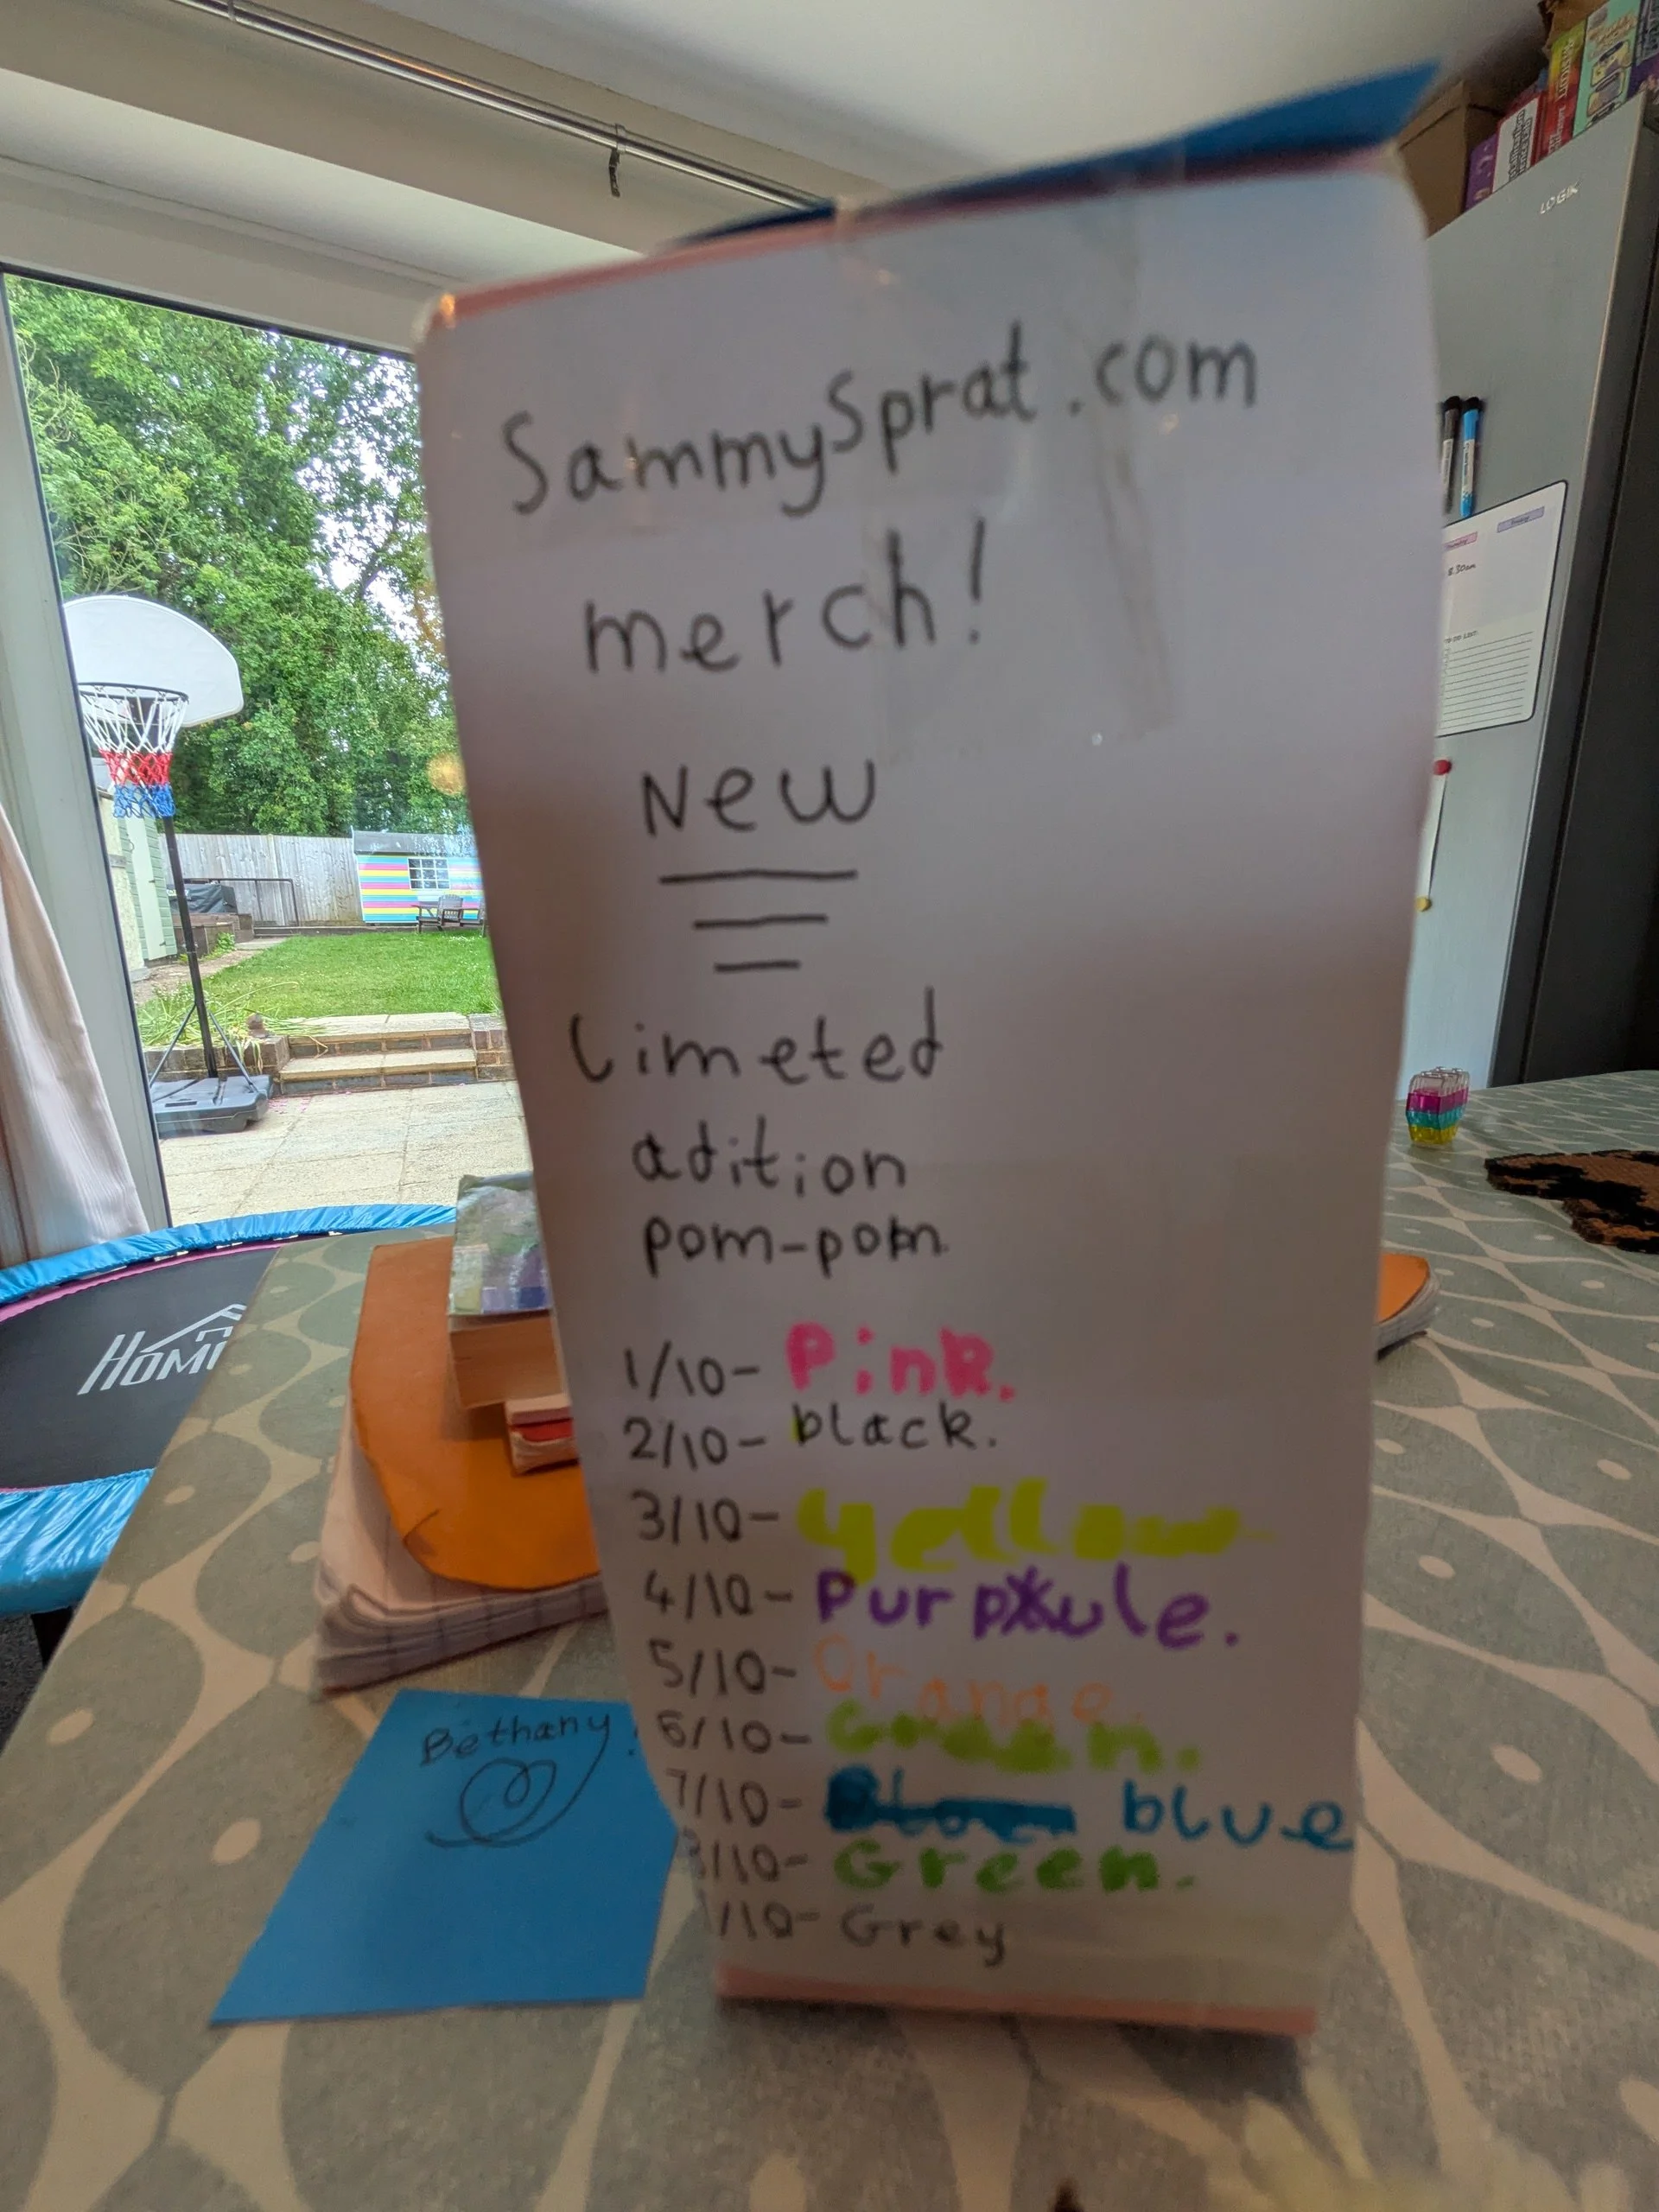 SammySprat.com
merch!
New
Limeted
adition
pom-pom
1/10- Pink.
2/10- black.
3/10- yellow
4/10- Purpule.
5/10- Orange.
6/10- Green.
7/10- blue
8/10- Green.
/10- Grey
Bethany!
HOM
LOGIK
8.30am